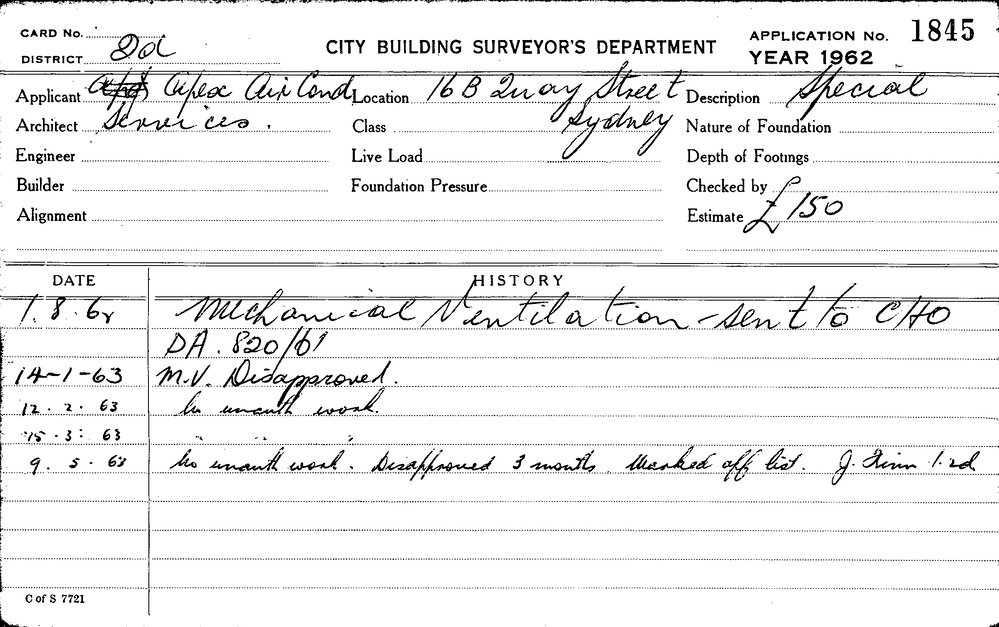 CARD No.
CITY BUILDING SURVEYOR'S DEPARTMENT
APPLICATION No. 1845
DISTRICT 2d
YEAR 1962
Applicant Apex Air Cond Location 16 B Quay Street Description Special
Architect Services. Class Sydney Nature of Foundation
Engineer Live Load Depth of Footings
Builder Foundation Pressure Checked by
Alignment Estimate £150
DATE HISTORY
1.8.62 Mechanical Ventilation - sent to CHO
DA. 820/61
14-1-63 M.V. Disapproved.
12.2.63 No unauth work.
15.3:63 " " "
9.5.63 No unauth work. Disapproved 3 months. Marked off list. J. Finn 1.2d
C of S 7721